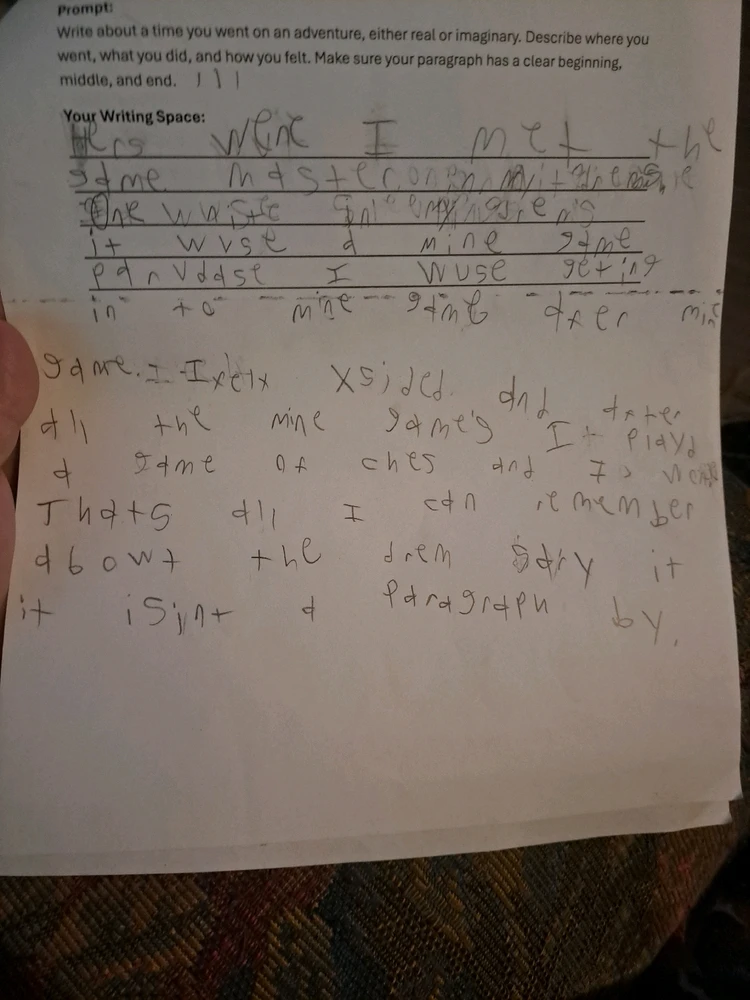 Prompt:
Write about a time you went on an adventure, either real or imaginary. Describe where you
went, what you did, and how you felt. Make sure your paragraph has a clear beginning,
middle, and end.
Your Writing Space:
Hers wene I met the
game master
One
it wvse a mine game
I wuse geting
in to mine game after mine
game. I xsided and after
all the mine game's I playd
a game of ches and I
Thats all I can remember
abowt the drem sary it
it isint a paragraph by.